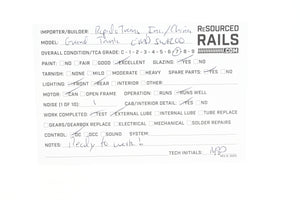 IMPORTER/BUILDER: Rapido Trains Inc./China
RESOURCED
RAILS
.COM
MODEL: Grand Trunk
OVERALL CONDITION/TCA GRADE: ○1 ○2 ○3 ○4 ○5 ○6 ○7 ○8 ○9
PAINT: ○NO ○FAIR ○GOOD ○EXCELLENT GLAZING ○YES ○NO
TARNISH: ○NONE ○MILD ○MODERATE ○HEAVY SPARE PARTS ○YES ○NO
LIGHTING: ○FRONT ○REAR ○INTERIOR ○OTHER:
MOTOR: ○CAN ○OPEN FRAME OPERATION: ○RUNS ○RUNS WELL
NOISE (1 OF 10) 1 CAB/INTERIOR DETAIL: ○YES ○NO
WORK COMPLETED: ○TEST ○EXTERNAL LUBE ○INTERNAL LUBE ○TUBE REPLACE
○GEARS/GEARBOX REPLACE ○ELECTRICAL ○MECHANICAL ○SOLDER REPAIRS
CONTROL: ○DC ○DCC ○SOUND SYSTEM:
NOTES: Ready to work!
TECH INITIALS: